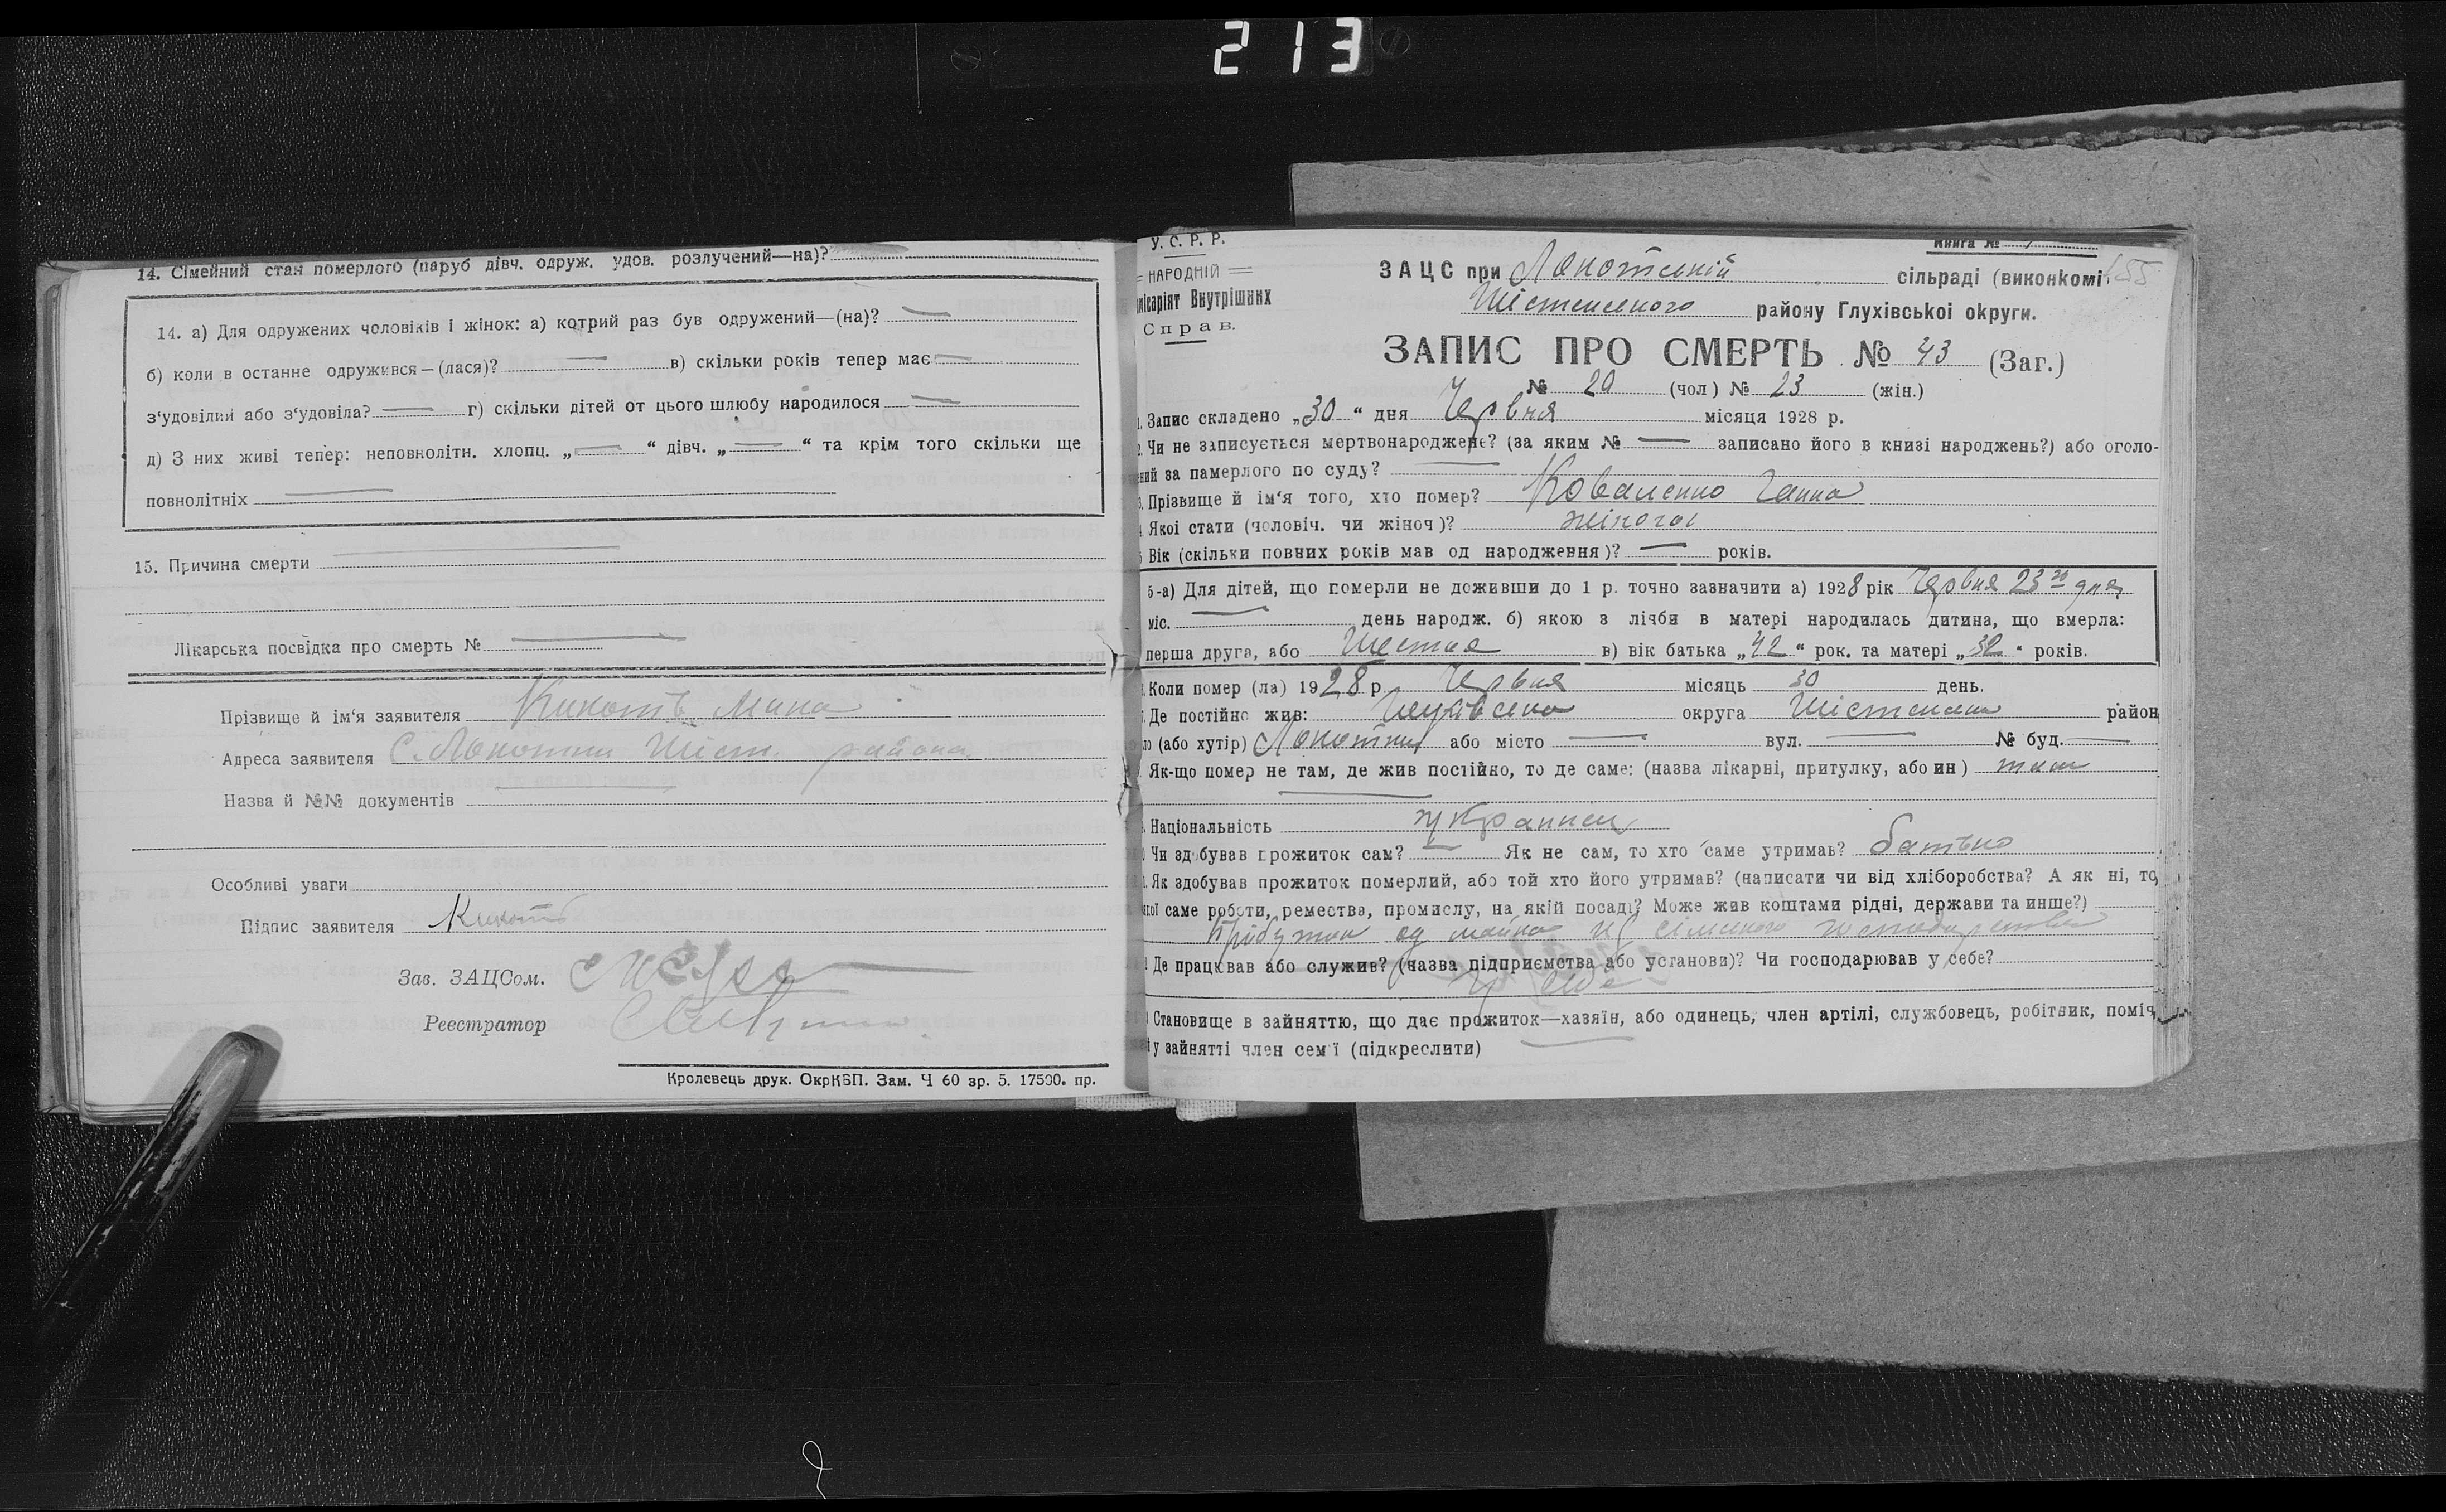 213
14. Сімейний стан померлого (паруб дівч. одруж. удов. розлучений—на)?
14. а) Для одружених чоловіків і жінок: а) котрий раз був одружений—(на)? —
б) коли в останне одружився—(лася)? — в) скільки років тепер має —
з'удовілий або з'удовіла? — г) скільки дітей от цього шлюбу народилося —
д) З них живі тепер: неповнолітн. хлопц. „ — “ дівч. „ — “ та крім того скільки ще
повнолітніх —
15. Причина смерти —
Лікарська посвідка про смерть № —
Прізвище й ім'я заявителя
Адреса заявителя С. Локотки Шіст. района
Назва й №№ документів —
Особливі уваги
Підпис заявителя
Зав. ЗАЦСом.
Реестратор
Кролевець друк. ОкрКВП. Зам. Ч 60 зр. 5. 17500. пр.
У. С. Р. Р.
НАРОДНІЙ
місаріят Внутрішних
Справ.
Книга №
ЗАЦС при Локотській сільраді (виконкомі 155
Шістенського району Глухівської округи.
ЗАПИС ПРО СМЕРТЬ № 43 (Заг.)
№ 20 (чол) № 23 (жін.)
1. Запис складено „30“ дня Червня місяця 1928 р.
2. Чи не записується мертвонароджене? (за яким № — записано його в книзі народжень?) або оголо-
ний за памерлого по суду? —
3. Прізвище й ім'я того, хто помер? Коваленко Ганна
4 Якої стати (чоловіч. чи жіноч)? жіночої
5 Вік (скільки повних років мав од народження)? — років.
5-а) Для дітей, що померли не доживши до 1 р. точно зазначити а) 1928 рік Червня 23го дня
міс. — день народж. б) якою з лічби в матері народилась дитина, що вмерла:
перша друга, або Шестая в) вік батька „42“ рок. та матері „32“ років.
Коли помер (ла) 1928 р. Червня місяць 30 день.
Де постійно жив: Глухівська округа Шістенськ район
ло (або хутір) Локотки або місто — вул. — № буд. —
Як-що помер не там, де жив постійно, то де саме: (назва лікарні, притулку, або ин) там
—
Національність
Чи здобував прожиток сам? — Як не сам, то хто саме утримав? батько
Як здобував прожиток померлий, або той хто його утримав? (написати чи від хліборобства? А як ні, то
якої саме роботи, ремества, промислу, на якій посаді? Може жив коштами рідні, держави та инше?)
Прибуток од майна
Де працював або служив? (назва підприємства або установи)? Чи господарював у себе?
У себе
Становище в зайняттю, що дає прожиток—хазяїн, або одинець, член артілі, службовець, робітник, поміч
і у зайнятті член сем'ї (підкреслити)